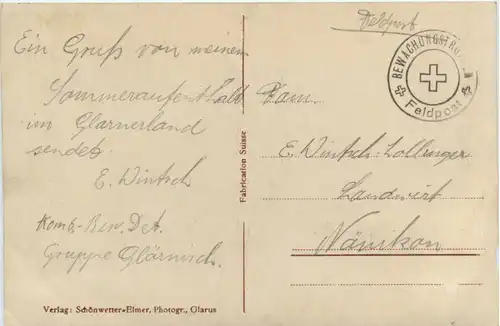 Ein Gruß von meinem
Sommeraufenthalt
im Glarnerland
sendet
E. Wintsch
Komb. Bew. Det.
Gruppe Glärnisch.
Verlag: Schönwetter-Elmer, Photogr., Glarus
Fabrication Suisse
Feldpost
BEWACHUNGSTRUPPEN
Feldpost
Fam.
E. Wintsch-Bollinger
Landwirt
Nänikon